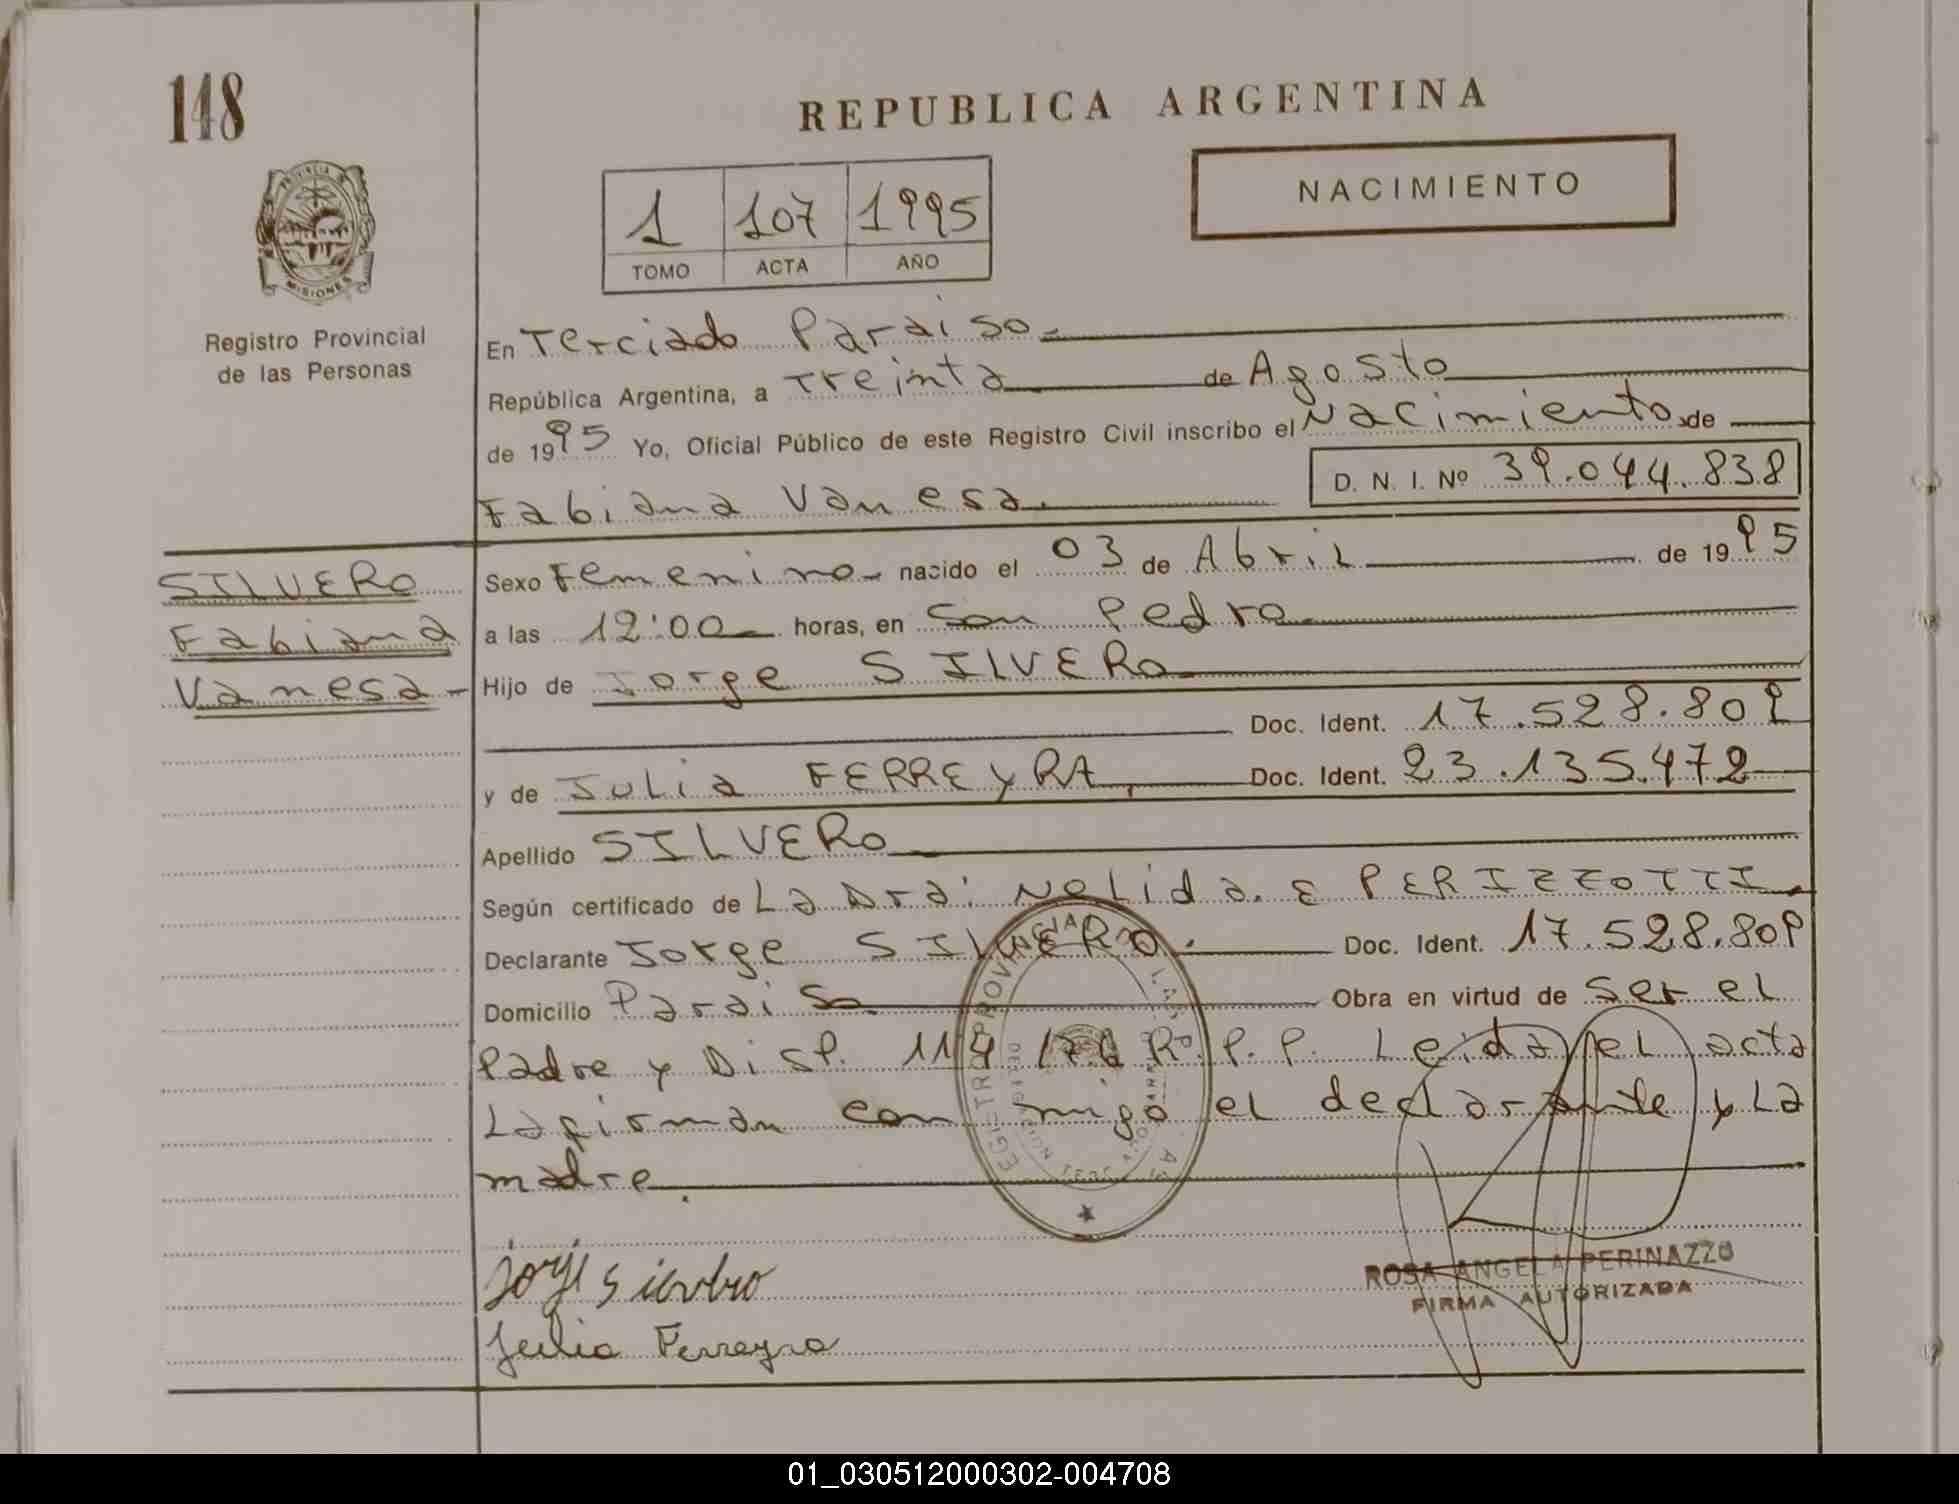 148
REPUBLICA ARGENTINA
NACIMIENTO
1 107 1995
TOMO ACTA AÑO
PROVINCIA DE
MISIONES
Registro Provincial
de las Personas
En Terciado Paraiso.
República Argentina, a Treinta de Agosto
de 1995 Yo, Oficial Público de este Registro Civil inscribo el Nacimiento de
D. N. I. Nº 39.044.838
Fabiana Vanesa.
SILVERO
Fabiana
Vanesa-
Sexo Femenino- nacido el 03 de Abril de 1995
a las 12:00 horas, en San Pedro
Hijo de Jorge SILVERO
Doc. Ident. 17.528.809
y de Julia FERREYRA, Doc. Ident. 23.135.472
Apellido SILVERO
Según certificado de La Dra: Nelida. E PERIZZOTTI.
Declarante Jorge SILVERO. Doc. Ident. 17.528.809
Domicilio Paraiso Obra en virtud de Ser el
Padre y Disp. R.P.P. Leida el acta
La firman con migo el declarante y La
madre.
Julia Ferreyra
ROSA ANGELA PERINAZZO
FIRMA AUTORIZADA
01_030512000302-004708